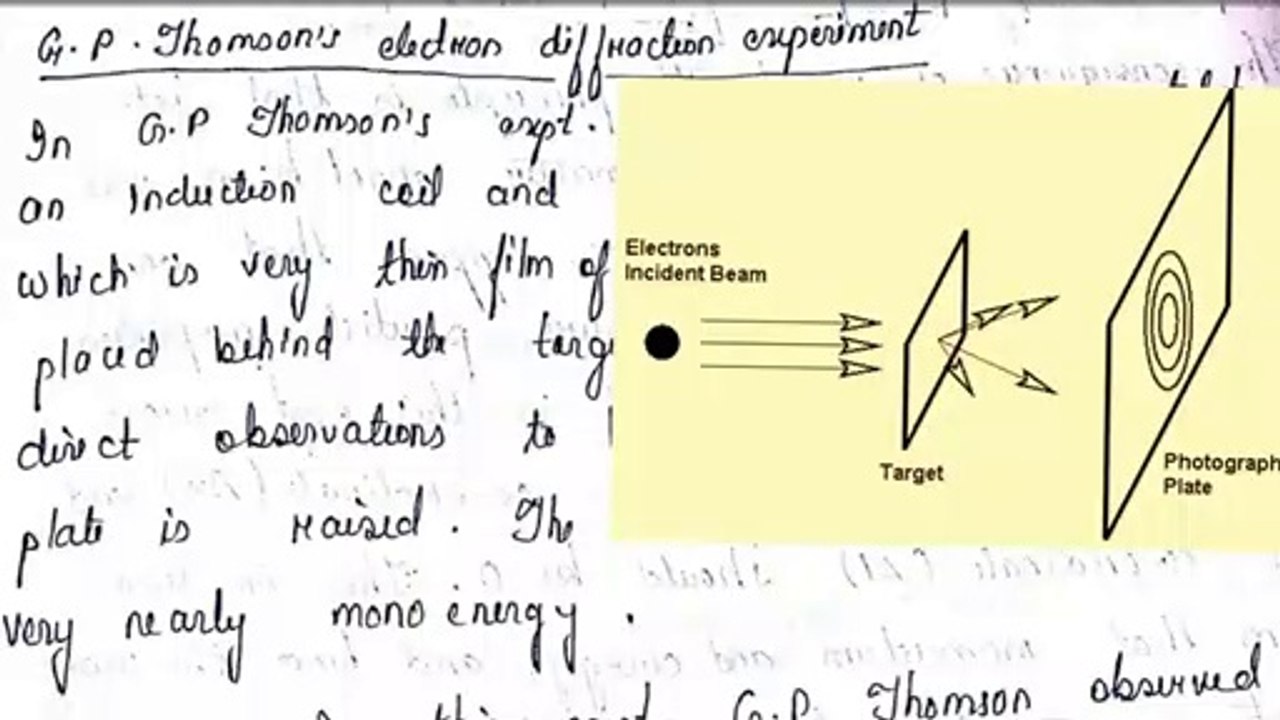 G. P. Thomson's electron diffraction experiment
In G.P Thomson's expt.
an Induction coil and
which is very thin film of
placed behind the
direct observations to
plate is raised. The
very nearly mono energy.
G.P. Thomson observed
Electrons
Incident Beam
Target
Photograph
Plate